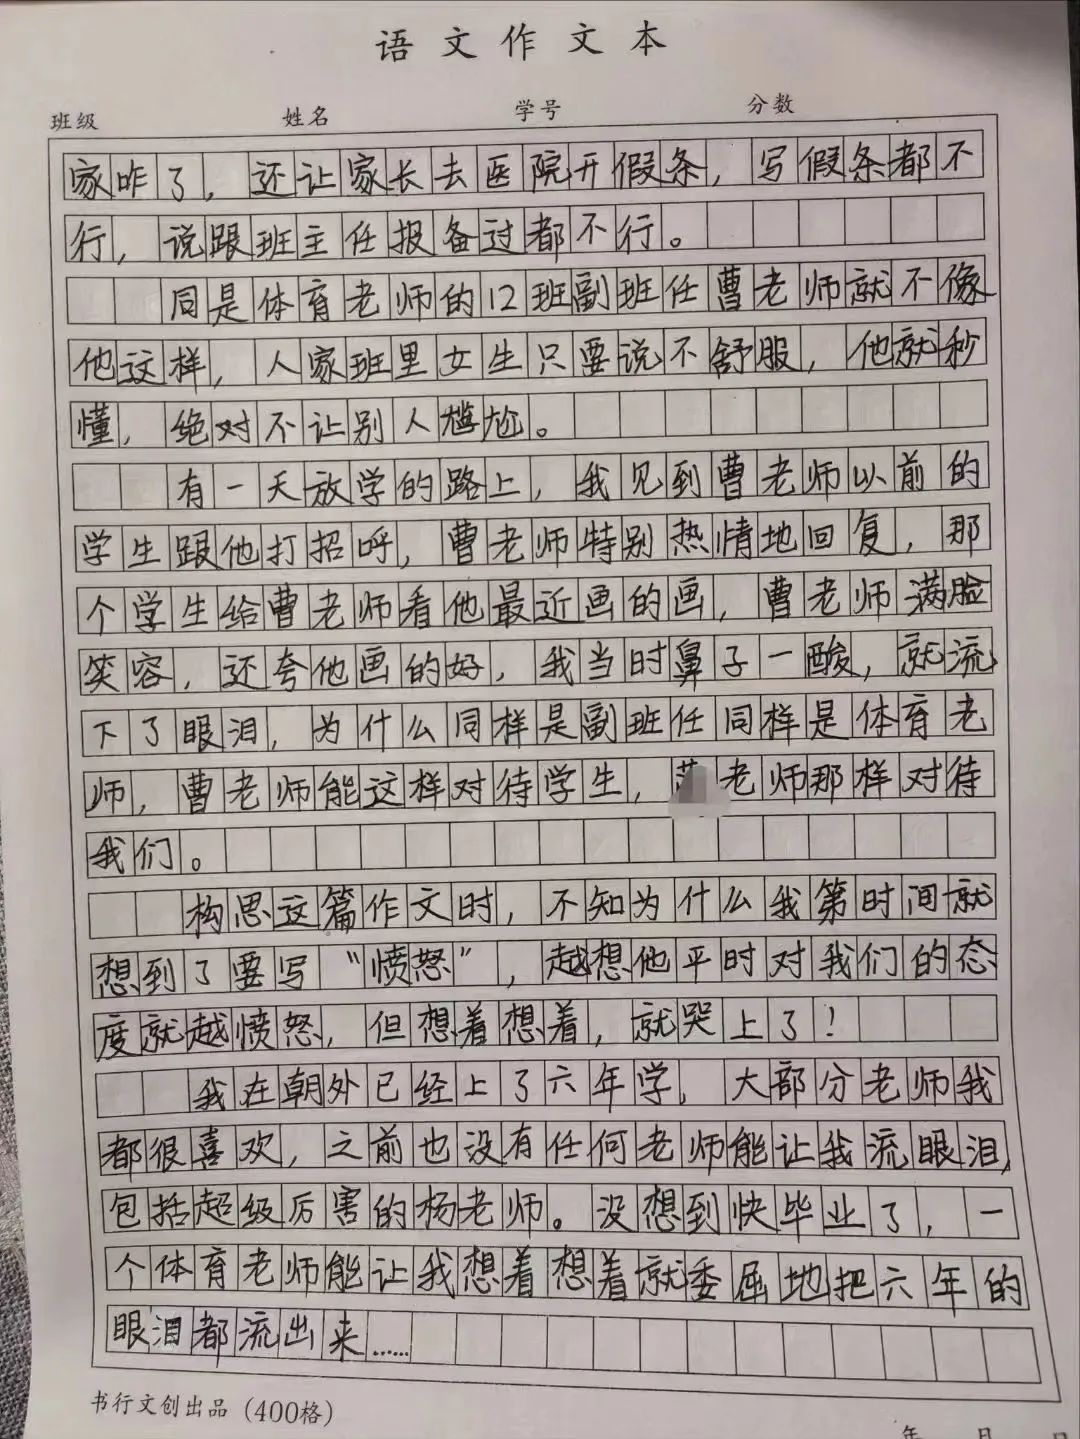 语文作文本
班级 姓名 学号 分数
家咋了，还让家长去医院开假条，写假条都不
行，说跟班主任报备过都不行。
同是体育老师的12班副班任曹老师就不像
他这样，人家班里女生只要说不舒服，他就秒
懂，绝对不让别人尴尬。
有一天放学的路上，我见到曹老师以前的
学生跟他打招呼，曹老师特别热情地回复，那
个学生给曹老师看他最近画的画，曹老师满脸
笑容，还夸他画的好，我当时鼻子一酸，就流
下了眼泪，为什么同样是副班任同样是体育老
师，曹老师能这样对待学生，老师那样对待
我们。
构思这篇作文时，不知为什么我第时间就
想到了要写“愤怒”，越想他平时对我们的态
度就越愤怒，但想着想着，就哭上了！
我在朝外已经上了六年学，大部分老师我
都很喜欢，之前也没有任何老师能让我流眼泪，
包括超级厉害的杨老师。没想到快毕业了，一
个体育老师能让我想着想着就委屈地把六年的
眼泪都流出来……
书行文创出品（400格）
年 月 日